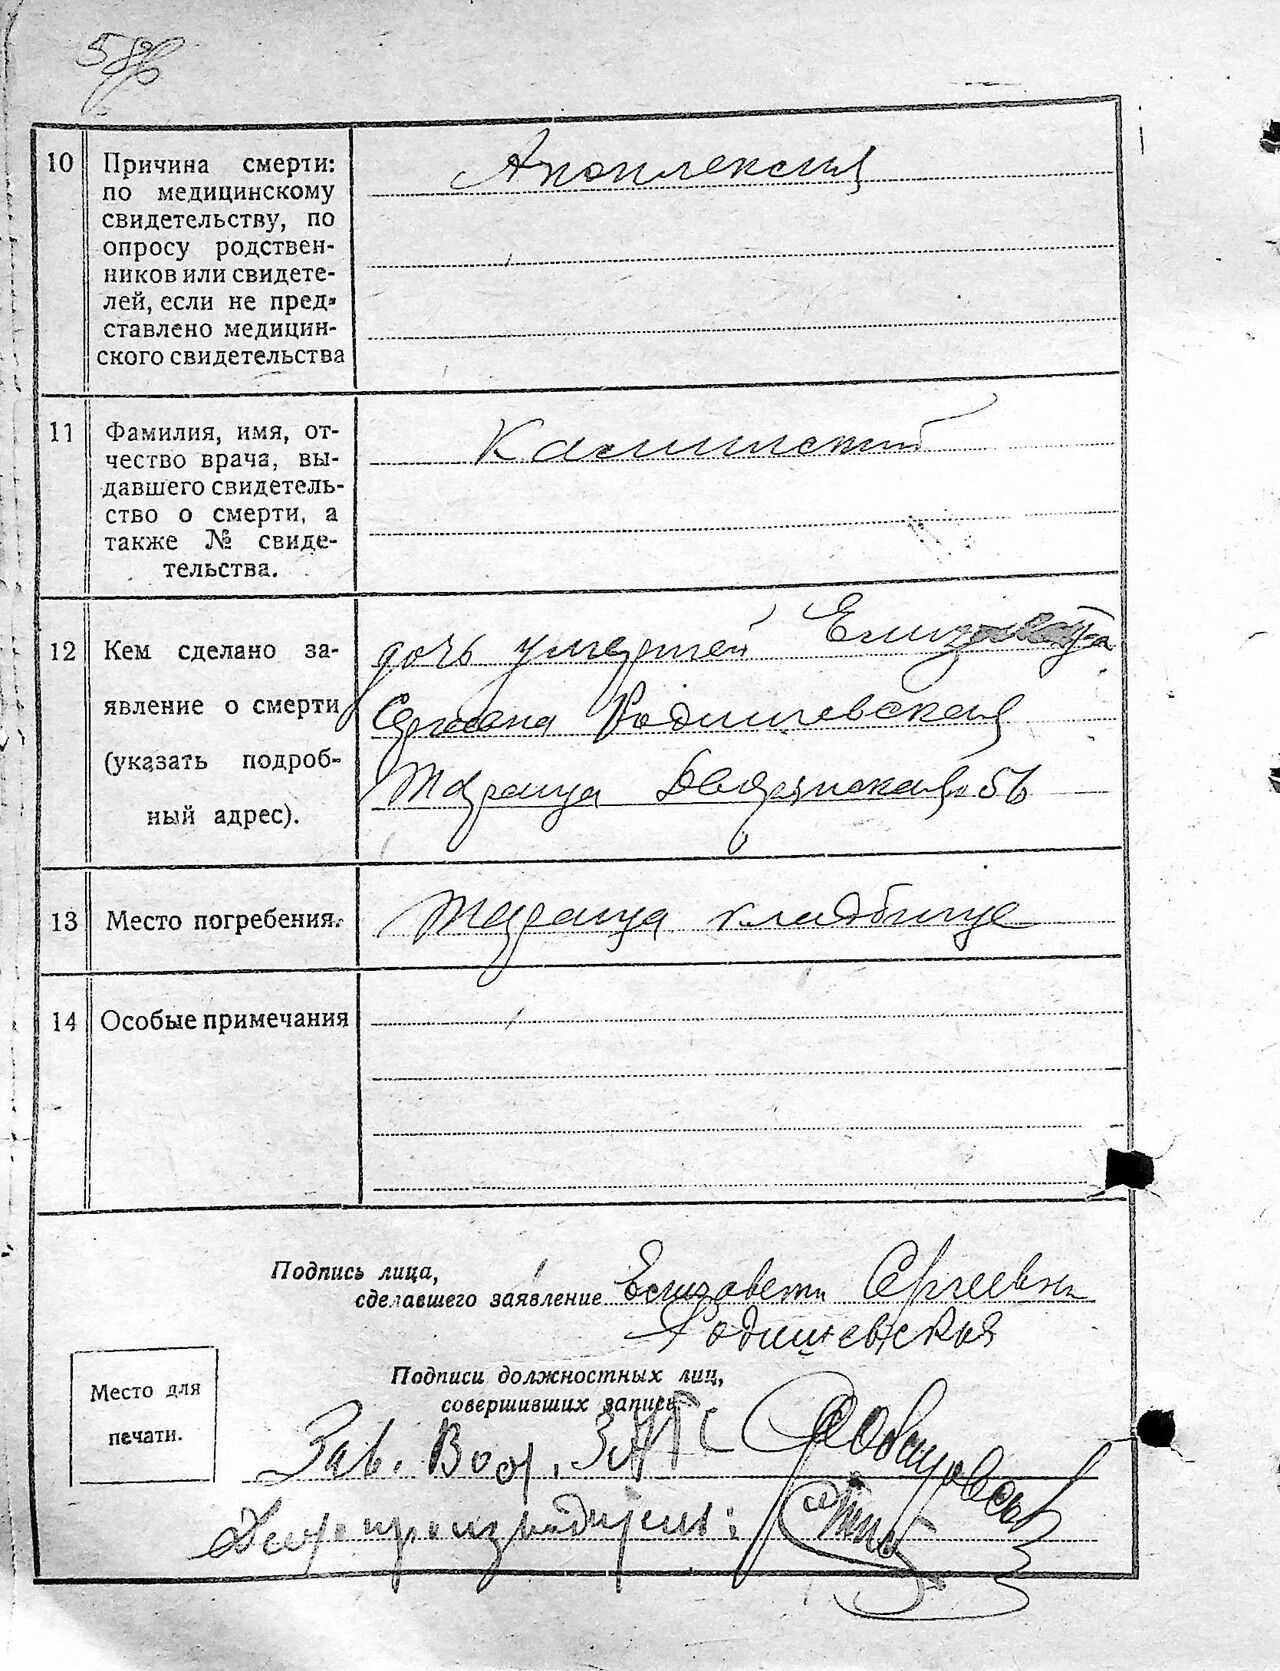 58
10 Причина смерти:
по медицинскому
свидетельству, по
опросу родствен-
ников или свидете-
лей, если не пред-
ставлено медицин-
ского свидетельства
Апоплексия
11 Фамилия, имя, от-
чество врача, вы-
давшего свидетель-
ство о смерти, а
также № свиде-
тельства.
12 Кем сделано за-
явление о смерти
(указать подроб-
ный адрес).
дочь умершей Елизавета
Родишевская
Тараща
13 Место погребения.
Тараща кладбище
14 Особые примечания
Подпись лица,
сделавшего заявление Елизавета Сергеевна
Родишевская
Подписи должностных лиц,
совершивших запись
Место для
печати.
Зав. ЗАГС
Делопроизводитель: